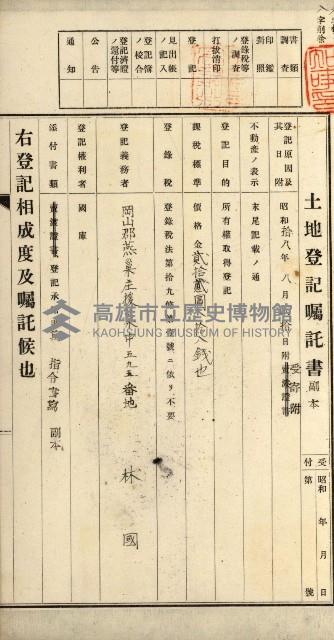 土地登記囑託書 副本
受付 昭和 年 月 日
第 號
登記原因及其日附 昭和拾八年八月 日附 賣渡證書
受寄附
不動產ノ表示 末尾記載ノ通
登記目的 所有權取得登記
課稅標準 價格金貳拾貳圓 錢也
登錄稅 登錄稅法第十九條 號ニ依リ不要
登記義務者 岡山郡燕巢庄 中五九五番地 林 國
登記權利者 國庫
添付書類 賣渡證書 登記承 指令書寫 副本
右登記相成度及囑託候也
書類調査
印鑑對照
登錄稅等ノ調査
打拔消印
登記
見出帳ノ記入
登記簿ノ校合
登記濟證ノ還付等
公告
通知
高雄市立歷史博物館
KAOHSIUNG MUSEUM OF HISTORY